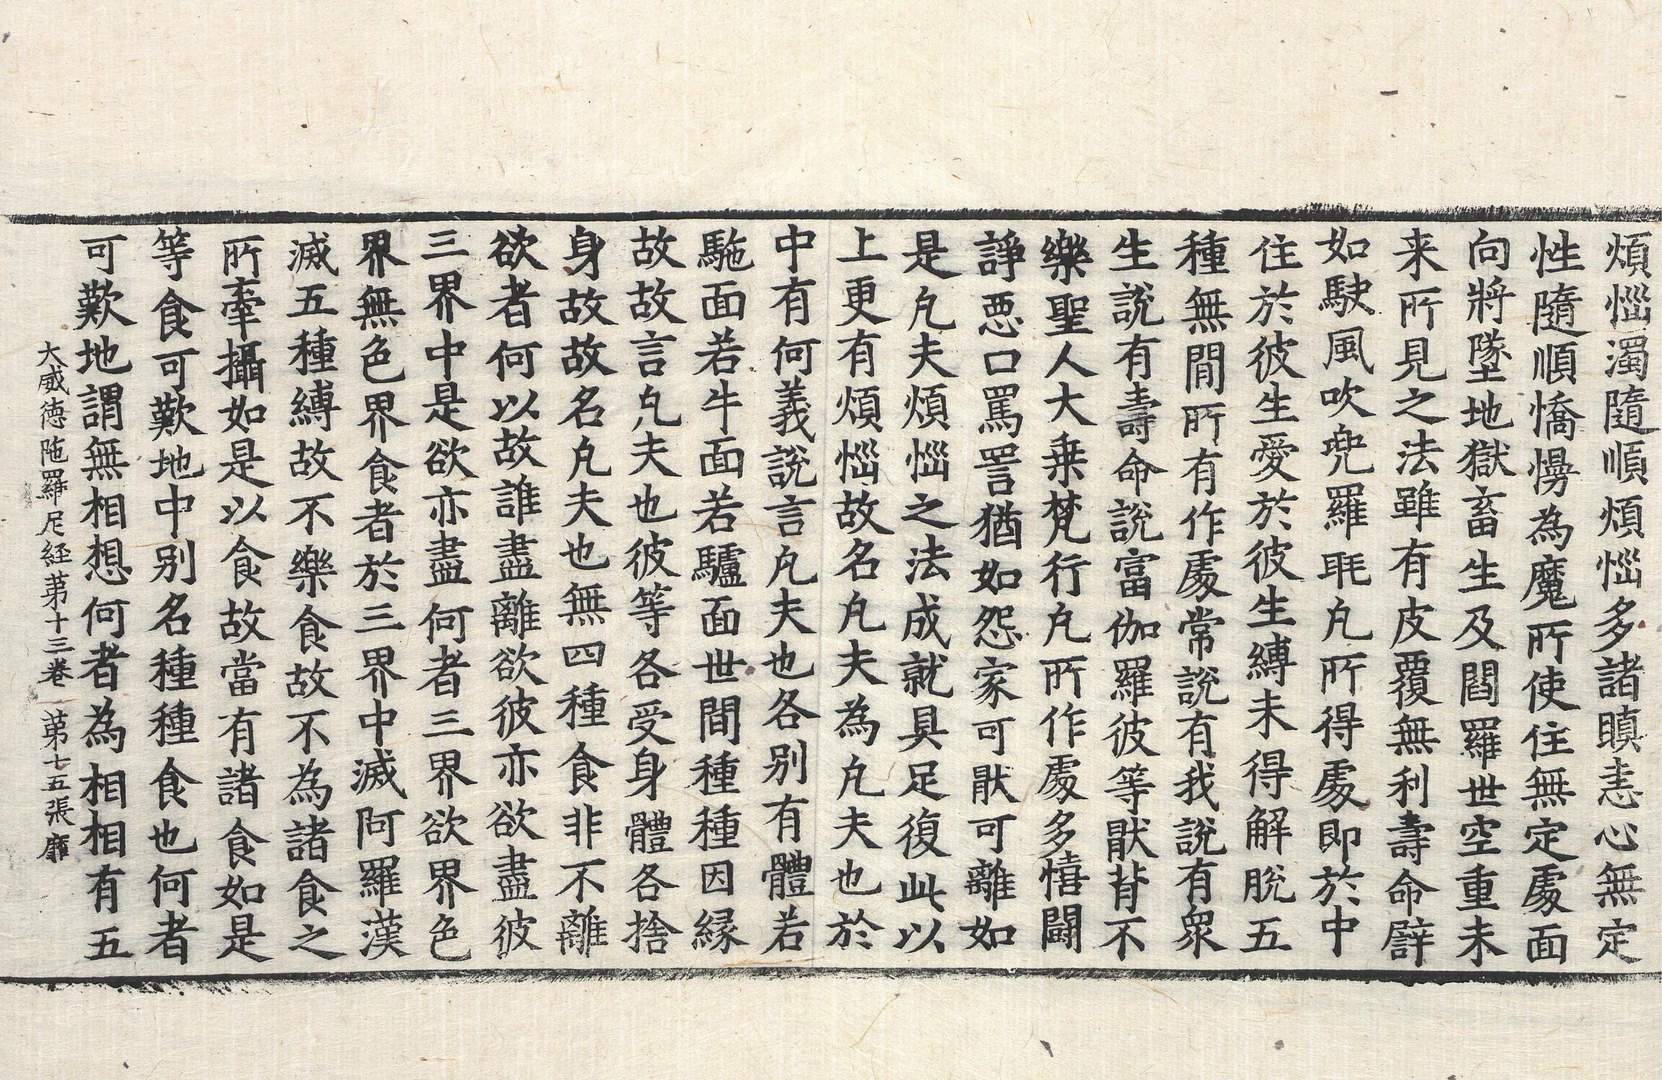 煩惱濁隨順煩惱多諸瞋恚心無定
性隨順憍慢為魔所使住無定處面
向將墜地獄畜生及閻羅世空重未
来所見之法雖有皮覆無利壽命譬
如駃風吹兜羅毦凡所得處即於中
住於彼生愛於彼生縛未得解脫五
種無間所有作處常說有我說有衆
生說有壽命說富伽羅彼等猒背不
樂聖人大乗梵行凡所作處多憘鬪
諍惡口罵詈猶如怨家可猒可離如
是凡夫煩惱之法成就具足復此以
上更有煩惱故名凡夫為凡夫也於
中有何義說言凡夫也各別有體若
駞面若牛面若驢面世間種種因緣
故故言凡夫也彼等各受身體各捨
身故故名凡夫也無四種食非不離
欲者何以故誰盡離欲彼亦欲盡彼
三界中是欲亦盡何者三界欲界色
界無色界食者於三界中滅阿羅漢
滅五種縛故不樂食故不為諸食之
所牽攝如是以食故當有諸食如是
等食可歎地中別名種種食也何者
可歎地謂無相想何者為相相有五
大威徳陁羅尼経苐十三卷 苐七五張 靡